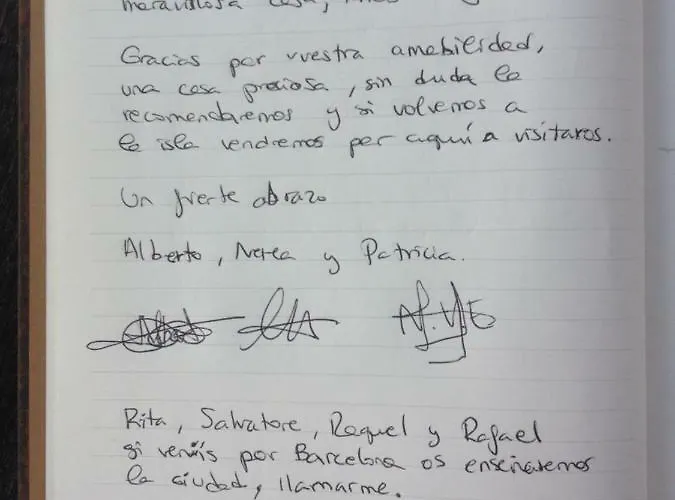 maravillosa casa,
Gracias por vuestra amabilidad,
una casa preciosa, sin duda la
recomendaremos y si volvemos a
la isla vendremos por aquí a visitaros.
Un fuerte abrazo
Alberto, Nerea y Patricia.
Rita, Salvatore, Raquel y Rafael
si venís por Barcelona os enseñaremos
la ciudad, llamarme.